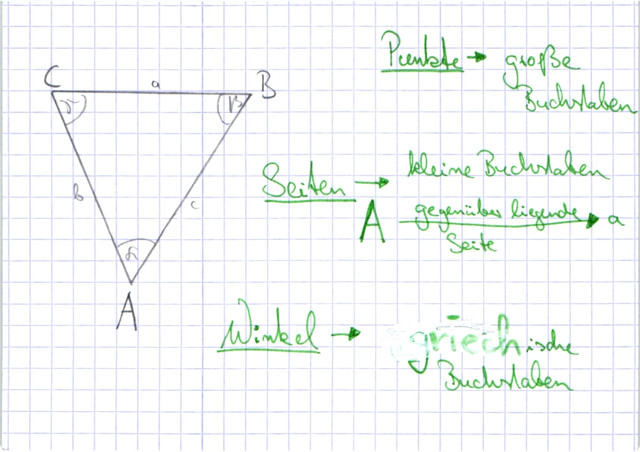 C a B
γ β
b c
α
A
Punkte → große
Buchstaben
Seiten → kleine Buchstaben
A gegenüber liegende → a
Seite
Winkel → griechische
Buchstaben